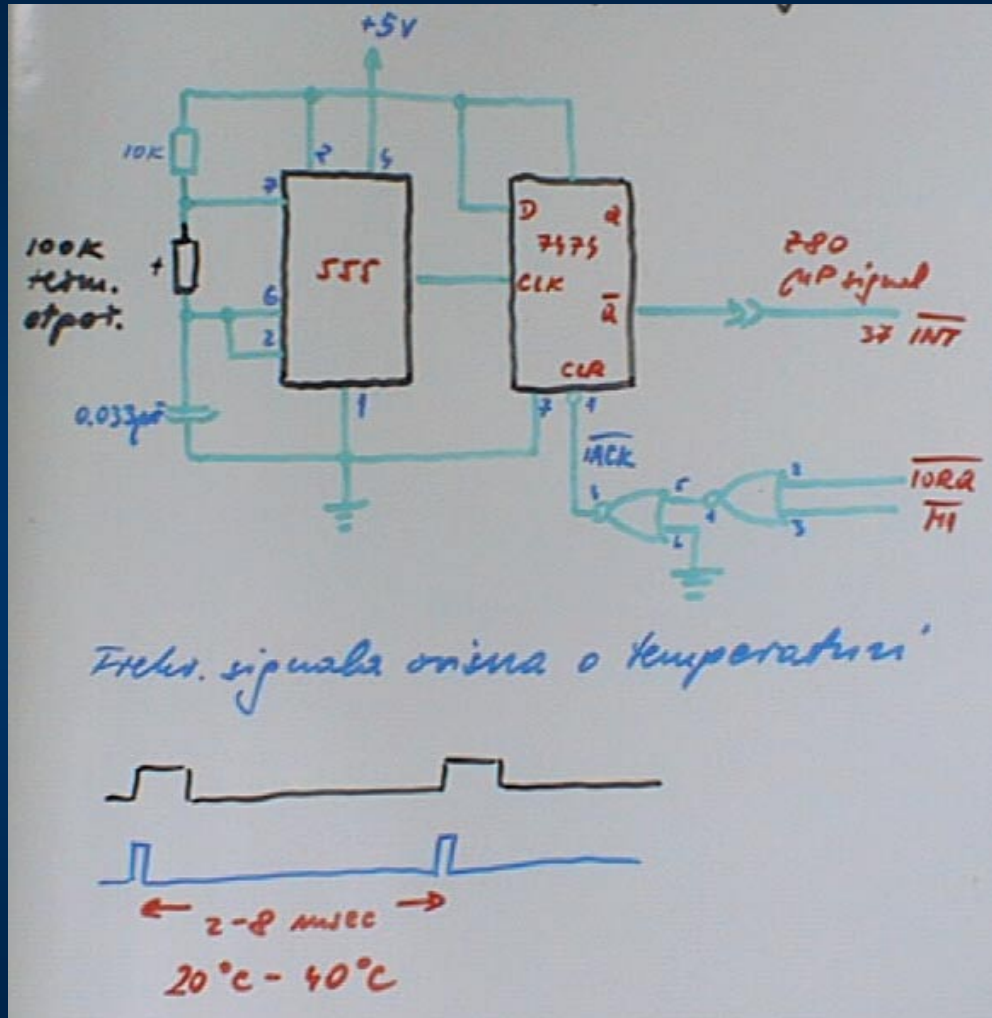 +5V
10K
100K
term.
otpot.
+
0.033µF
7
6
2
555
1
D
Q
7474
CLK
Q̅
CLR
7
1
Z80
µP signal
37 I̅N̅T̅
I̅A̅C̅K̅
5
6
2
3
I̅O̅R̅Q̅
M̅1̅
Frekv. signala ovisna o temperaturi
2-8 msec
20°C - 40°C